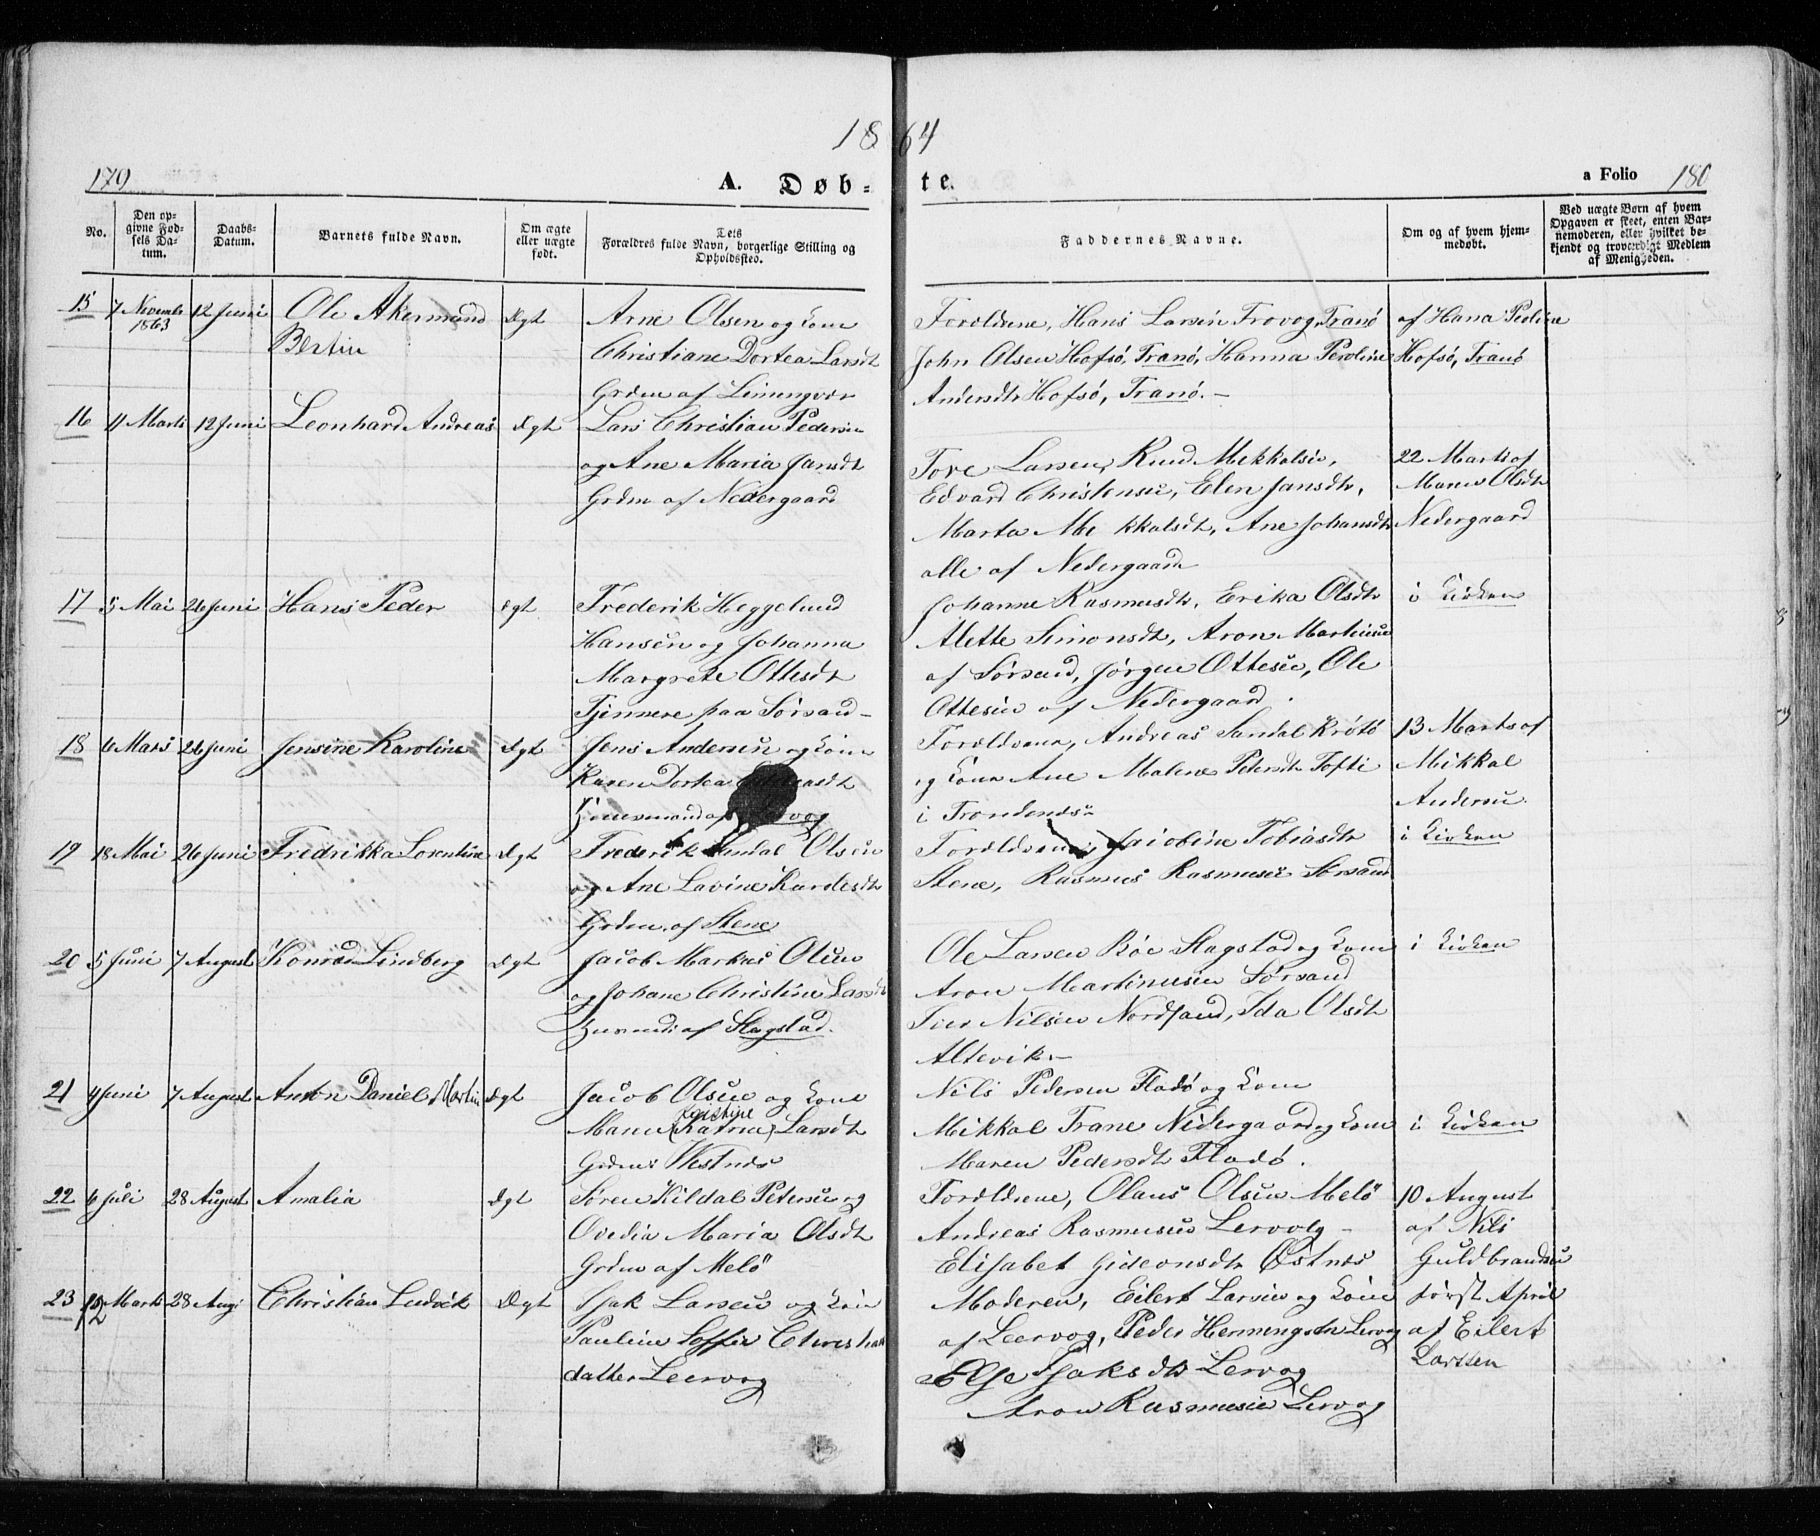 1864
179
A. Døbte.
a Folio 180
No.
Den opgivne Fødsels Datum.
Daabs-Datum.
Barnets fulde Navn.
Om ægte eller uægte født.
Forældres fulde Navn, borgerlige Stilling og Opholdssted.
Faddernes Navne.
Om og af hvem hjemmedøbt.
Ved uægte Børn af hvem Opgaven er skeet, enten Barnemoderen, eller hvilket bekjendt og troværdigt Medlem af Menigheden.
15 7 Novembr 1863 12 Juni Ole Akermand Bertin Ægt
Arne Olsen og Kone
Christiane Dortea Larsdt
Grdm af
Forældrene, Hans Larsen Trovog, Tranø
John Olsen Hofsø, Tranø, Hanna Peroline
Andersdtr Hofsø, Tranø.
af Hana Peoline
Hofsø, Tranø
16 4 Marts 12 Juni Leonhard Andreas Ægt
Lars Christian Pedersen
og Ane Maria Jansdt
Grdm af Nedergaard
Tore Larsen, Knud Mikkalsen,
Edvard Christensen, Elen Jansdtr,
Marta Mikkalsdt, Ane Johansdtr
alle af Nedergaard
22 Marts af
Maren Olsdtr
Nedergaard
17 5 Mai 26 Juni Hans Peder Ægt
Frederik Heggelund
Hansen og Johanna
Margrete Ottesdt
Tjennere paa Sørsand
Johanne Rasmusdtr, Erika Olsdtr
Alette Simonsdt, Aron Martinsen
af Sørsand, Jørgen Ottesen, Ole
Ottesen af Nedergaard.
i Kirken
18 6 Mars 26 Juni Jensine Karoline Ægt
Jens Andersen og Kone
Karen Dortea
Forældrene, Andreas Sandal Krøtø
og Kone Ane Malene Petersdtr Tofte
i Trondenæs
13 Marts af
Mikkal
Andersen.
19 18 Mai 26 Juni Fredrikka Lorentine Ægt
Frederik Sandal Olsen
og Ane Lavine Kardesdt
Grdm. af Stene
Forældrene, Jaiobine Tobiasdtr
Stene, Rasmus Rasmusen Sørsand
i Kirken
20 5 Juni 7 August Konrad Lindberg Ægt
Jacob Markus Olsen
og Johane Christine Larsdt
Husmand af Slagstad.
Ole Larsen Røe Slagstad og Kone
Aron Martinusen Sørsand
Iver Nilsen Nordsand, Ida Olsdt
Altevik.
i Kirken
21 4 Juni 7 August Anton Daniel Martin Ægt
Jacob Olsen og Kone
Maren (Katrine) Kristine Larsdt
Grdm: Vestnes
Nils Pedersen Fladø og Kone
Mikkal Trane Nedergaard og Kone
Maren Pedersdt Fladø.
i Kirken
22 6 Juli 28 August Amalia Ægt
Søren Kildal Petersen og
Ovedia Maria Olsdt
Grdm af Melø
Forældrene, Olaus Olsen Melø
Andreas Rasmusen Lervog
Elisabet Gideonsdtr Østnes
10 August
af Nils
Guldbrandsen
23 12 Marts 28 Aug Christian Ludvik Ægt
Isak Larsen og Kone
Pauline Soffie Christian
datter Leervog
Moderen, Eilert Larsen og Kone
af Leervog, Peder Henningsen Lervog
Else Isaksdtr Lervog
Aron Rasmusen Lervog
først April
af Eilert
Larssen